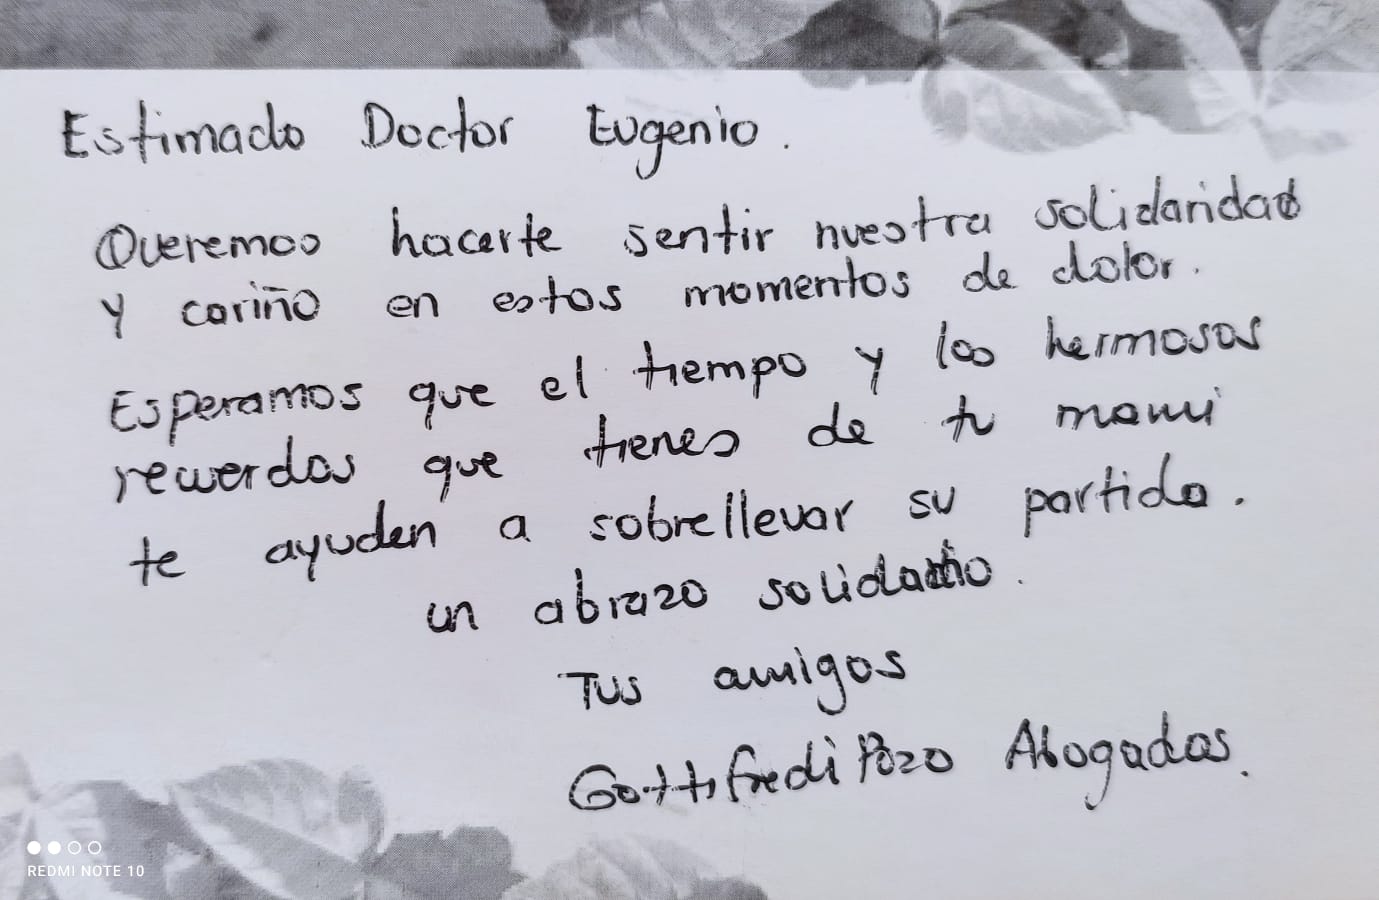 Estimado Doctor Eugenio.
Queremos hacerte sentir nuestra solidaridad
y cariño en estos momentos de dolor.
Esperamos que el tiempo y los hermosos
recuerdos que tienes de tu mami
te ayuden a sobrellevar su partida.
un abrazo solidario.
Tus amigos
Gottifredi Pozo Abogados.
REDMI NOTE 10